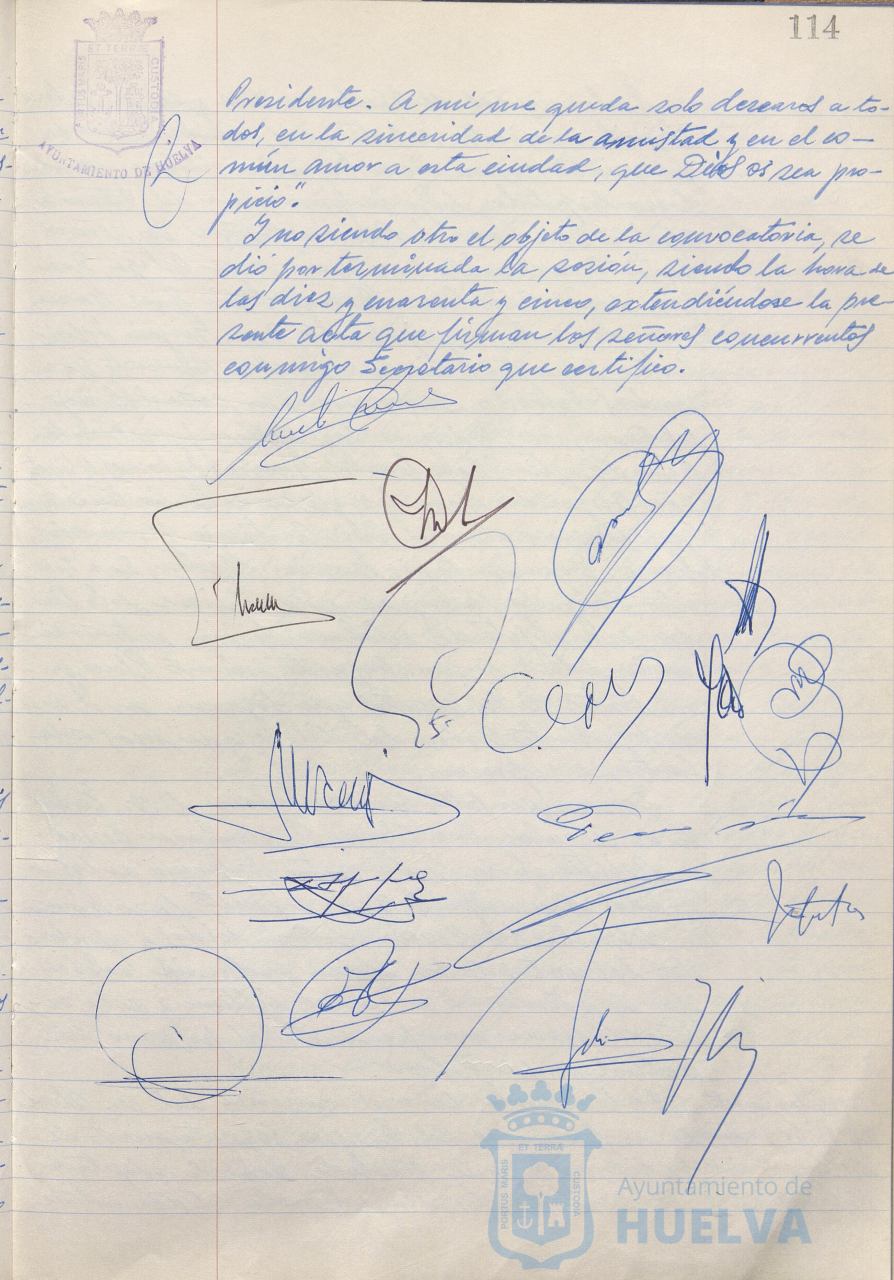 114
ET TERRÆ
PORTUS MARIS
CUSTODIA
AYUNTAMIENTO DE HUELVA
Presidente. A mi me queda solo desearos a to-
dos, en la sinceridad de la amistad y en el co-
mún amor a esta ciudad, que Dios os sea pro-
picio".
Y no siendo otro el objeto de la convocatoria, se
dió por terminada la sesión, siendo la hora de
las diez y cuarenta y cinco, extendiéndose la pre-
sente acta que firman los señores concurrentes
conmigo Secretario que certifico.
ET TERRÆ
PORTUS MARIS
CUSTODIA
Ayuntamiento de
HUELVA